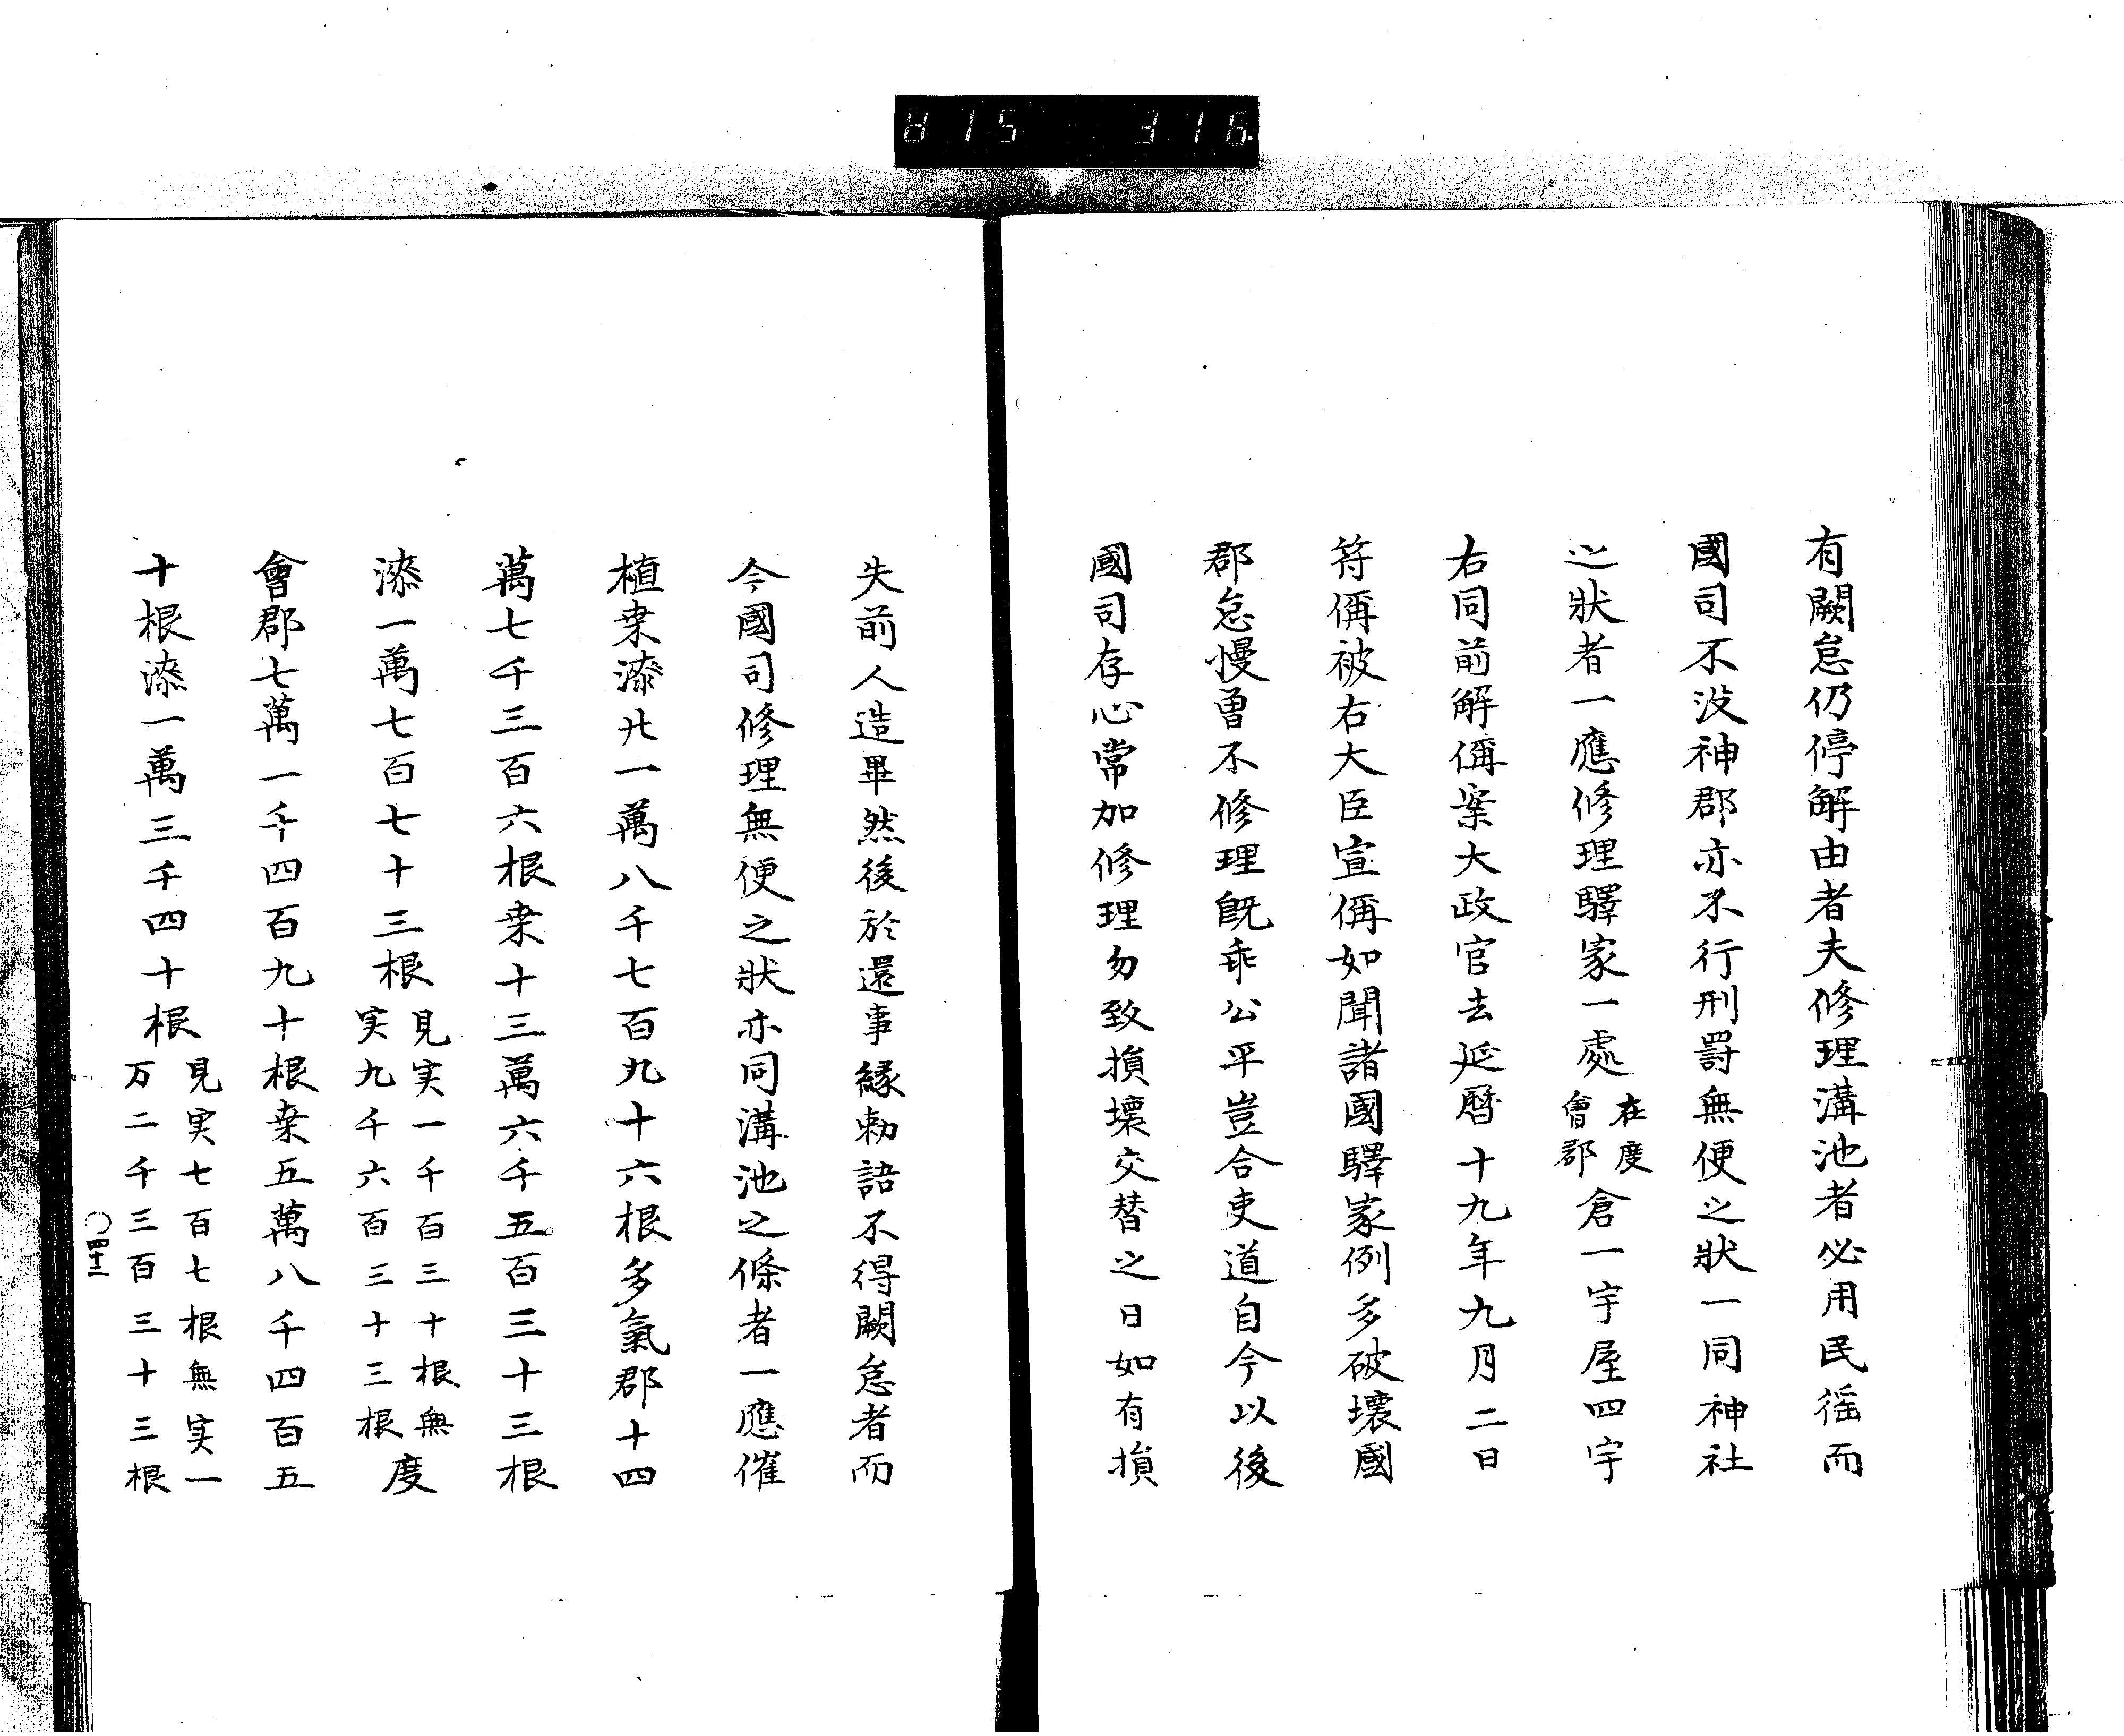 815 316
有闕怠仍停解由者夫修理溝池者必用民徭而
國司不沒神郡亦不行刑罸無便之狀一同神社
之狀者一應修理驛家一處在度會郡倉一宇屋四宇
右同前解偁案大政官去延曆十九年九月二日
符偁被右大臣宣偁如聞諸國驛家例多破壞國
郡怠慢曾不修理旣乖公平豈合吏道自今以後
國司存心常加修理勿致損壞交替之日如有損
失前人造畢然後於還事緣勅語不得闕怠者而
今國司修理無便之狀亦同溝池之條者一應催
植桒漆廿一萬八千七百九十六根多氣郡十四
萬七千三百六根桒十三萬六千五百三十三根
漆一萬七百七十三根見実一千百三十根無実九千六百三十三根度
會郡七萬一千四百九十根桒五萬八千四百五
十根漆一萬三千四十根見実七百七根無実一万二千三百三十三根
〇四十二